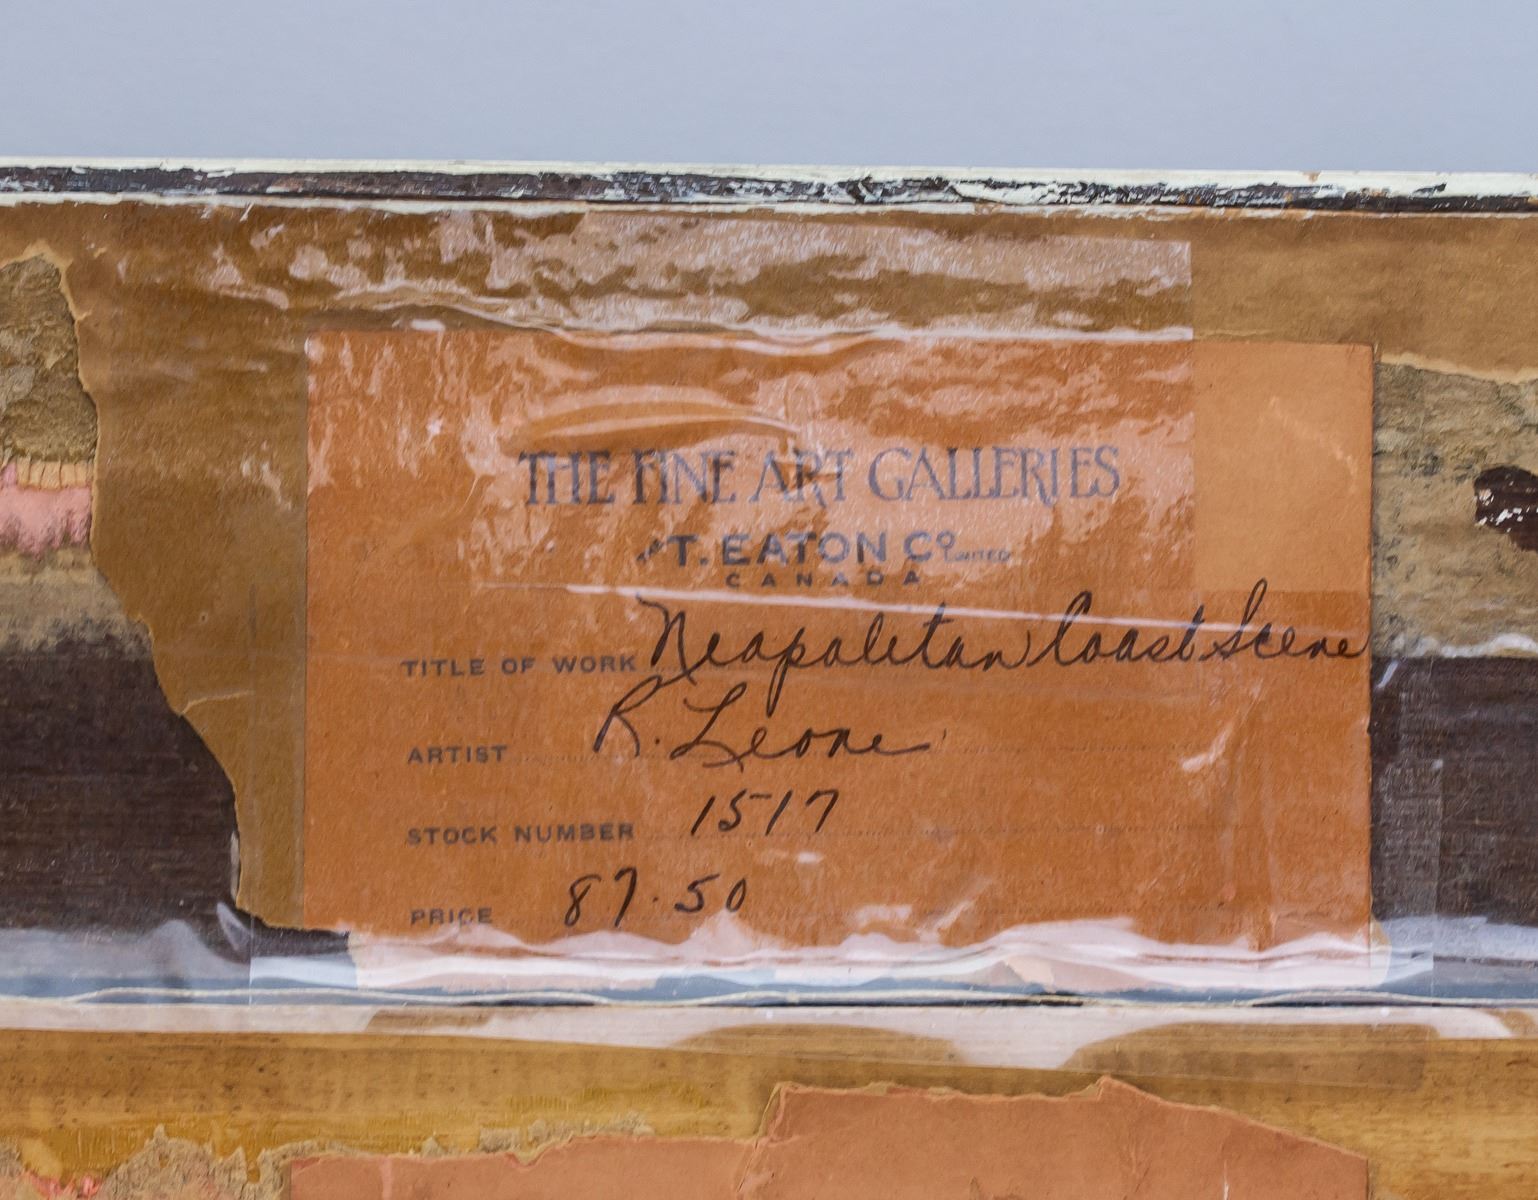 THE FINE ART GALLERIES
THE T. EATON CO LIMITED
CANADA
TITLE OF WORK Neapolitan Coast Scene
ARTIST R. Leone
STOCK NUMBER 1517
PRICE 87.50